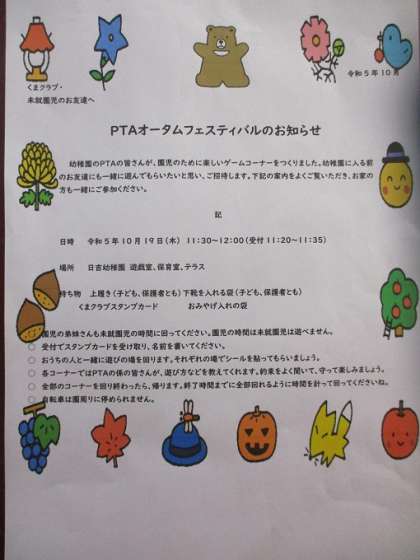 令和５年１０月
くまクラブ・
未就園児のお友達へ
PTAオータムフェスティバルのお知らせ
幼稚園のPTAの皆さんが、園児のために楽しいゲームコーナーをつくりました。幼稚園に入る前
のお友達にも一緒に遊んでもらいたいと思い、ご招待します。下記の案内をよくご覧いただき、お家の
方も一緒にご参加ください。
記
日時　令和５年１０月１９日（木）　１１：３０～１２：００（受付１１：２０～１１：３５）
場所　日吉幼稚園　遊戯室、保育室、テラス
持ち物　上履き（子ども、保護者とも）下靴を入れる袋（子ども、保護者とも）
くまクラブスタンプカード　おみやげ入れの袋
園児の弟妹さんも未就園児の時間に回ってください。園児の時間は未就園児は遊べません。
○　受付でスタンプカードを受け取り、名前を書いてください。
○　おうちの人と一緒に遊びの場を回ります。それぞれの場でシールを貼ってもらいましょう。
○　各コーナーではPTAの係の皆さんが、遊び方などを教えてくれます。約束をよく聞いて、守って楽しみましょう。
○　全部のコーナーを回り終わったら、帰ります。終了時間までに全部回れるように時間を計って回ってくださいね。
○　自転車は園周りに停められません。